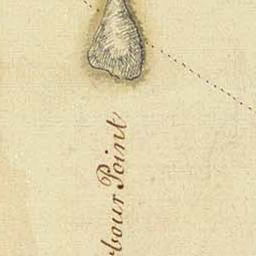 rbour Point